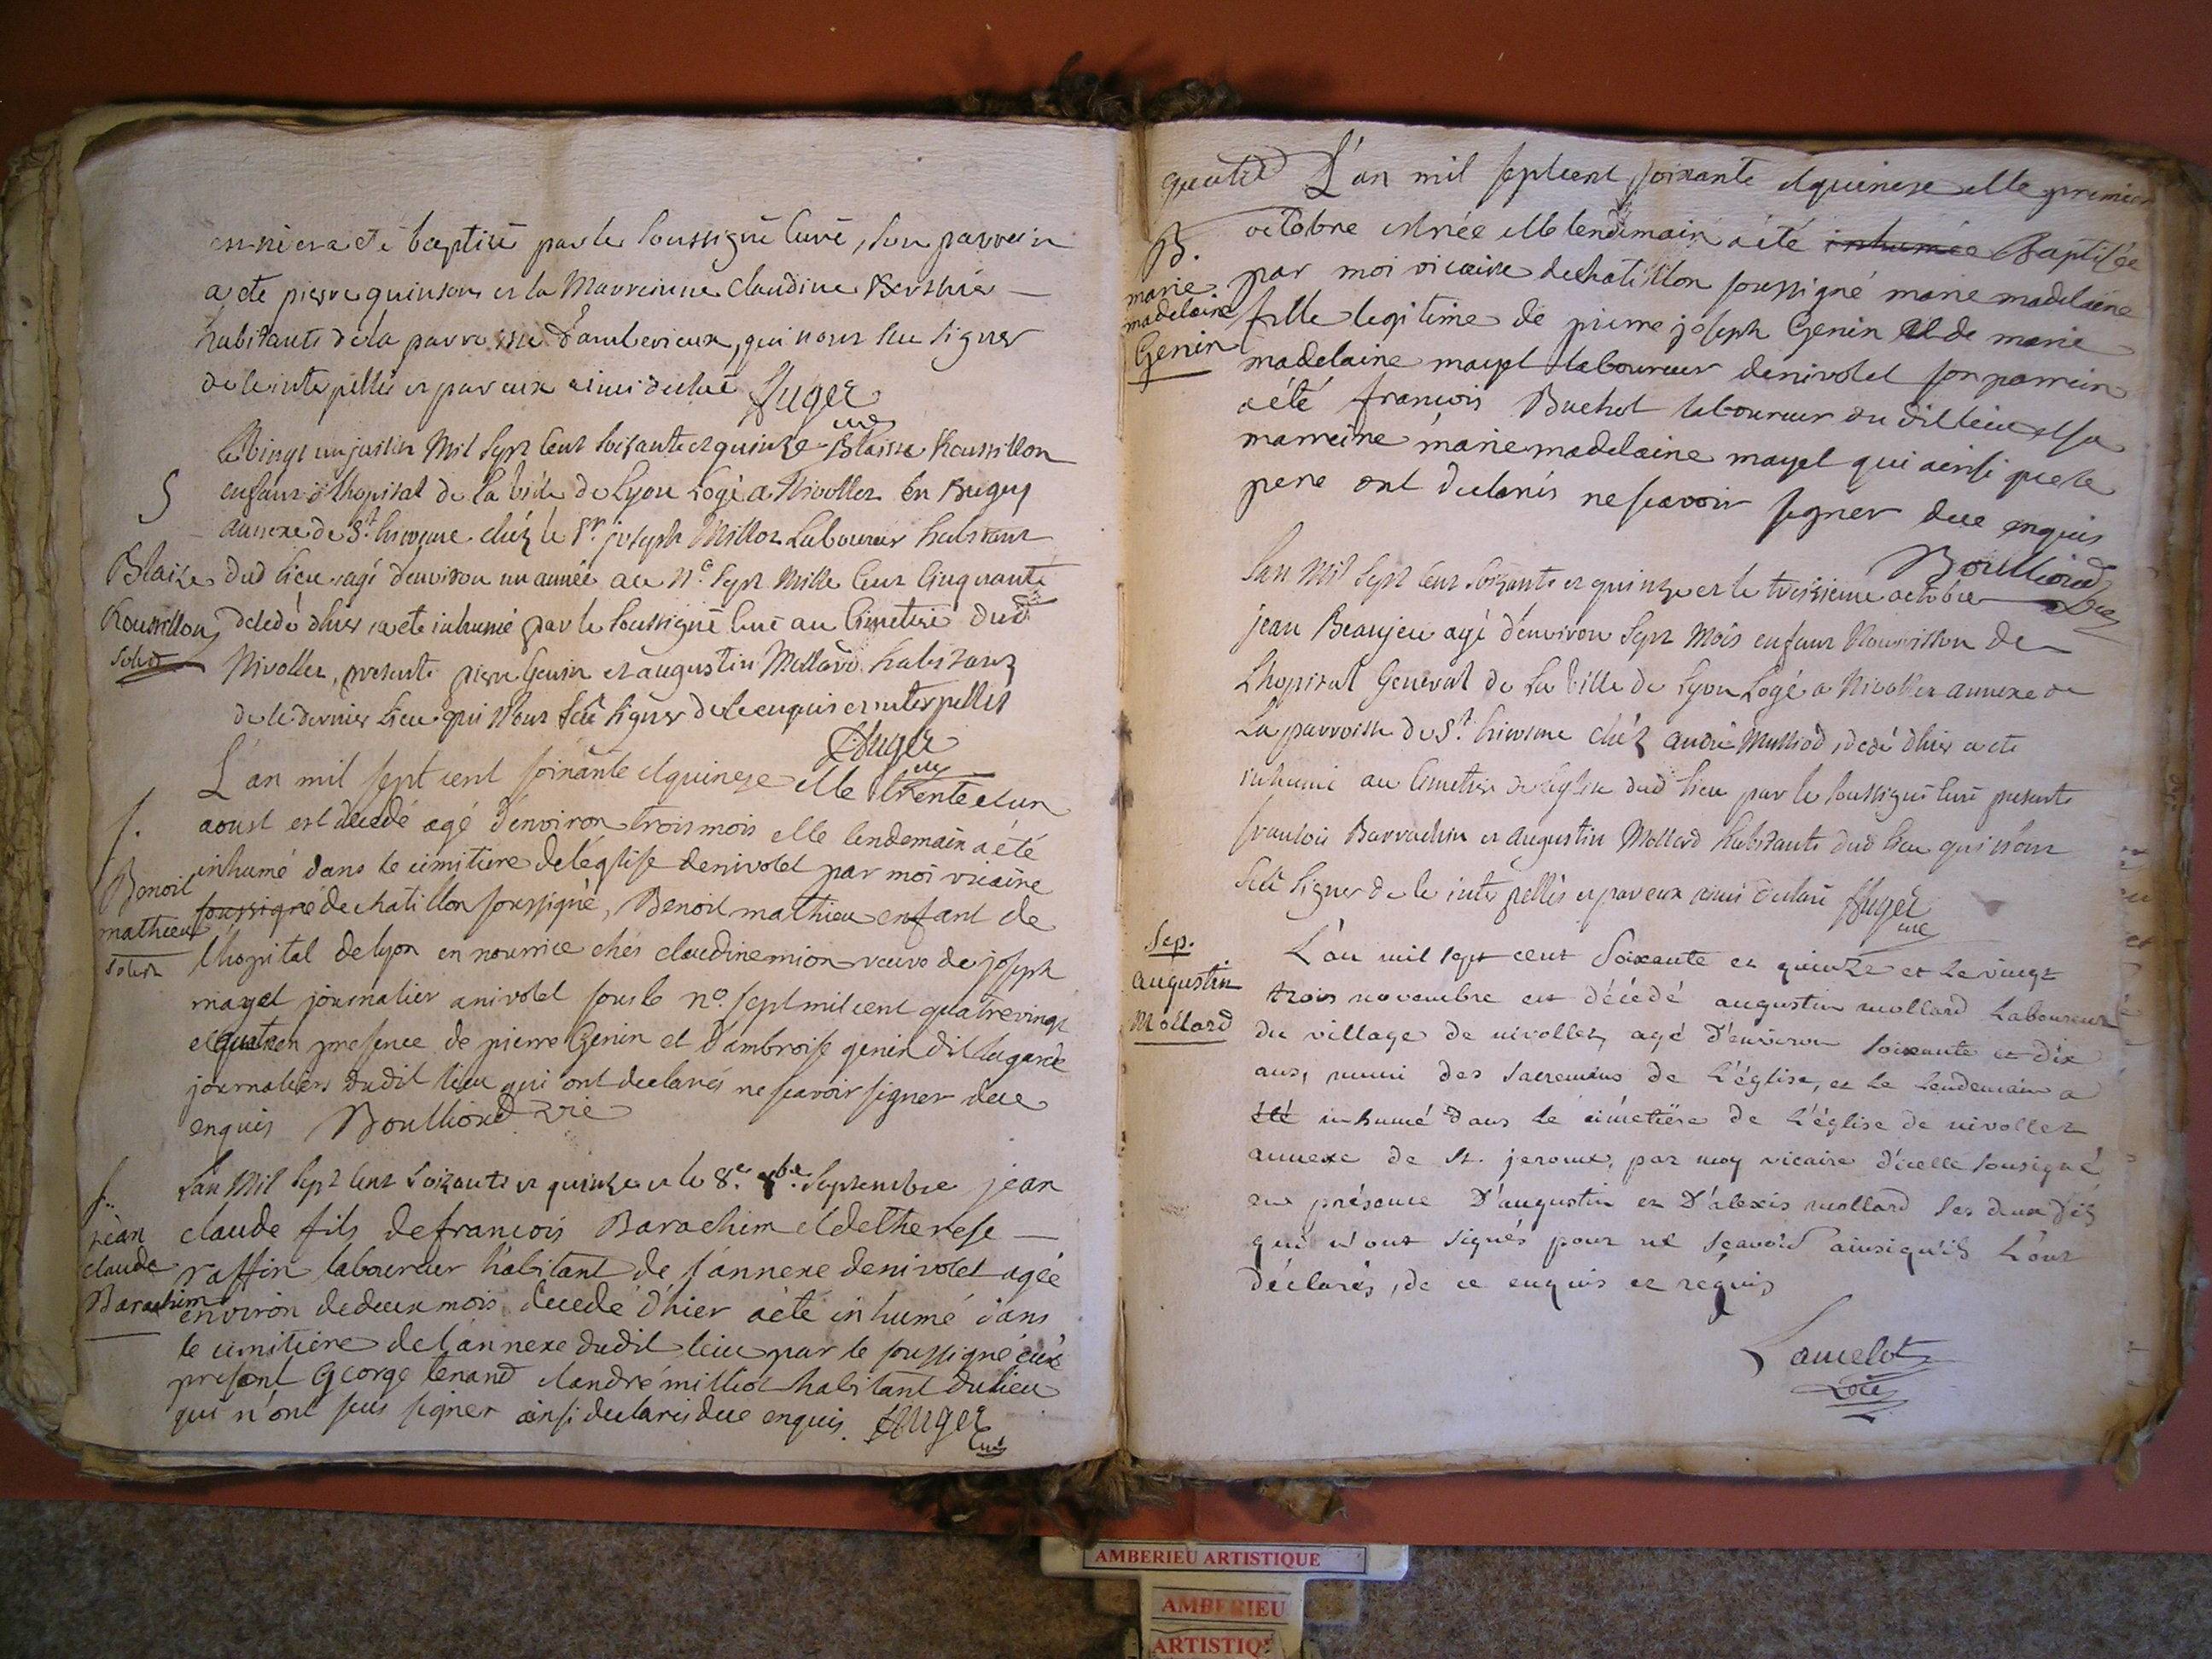 a eté baptisé par le soussigné Curé, son parrein
a eté pierre quinson et la Marreinne Claudine Bershié
habitants de la parroisse d'amberieux, qui n'ont sçu signer
de le interpellés et par eux ainsi declaré Auger
curé
le vingt un juillet Mil Sept Cent soixante et quinze Blaise Roussillon
S
enfant de l'hopital de la ville de Lyon Logé a Nivollet En Bugey
annexe de St. hierome chéz le Sr. joseph Millor Laboureur habitant
Blaise
Roussillon
solvit
dud lieu agé d'environ un année au No. Sept Mille Cent Cinquante
decedé d'hier a eté inhumé par le soussigné Curé au Cimetiere dud
Nivollet, presents pierre Genin et augustin Mollard habitants
de le dernier Lieu qui n'ont sçu signer de le enquis et interpellés
Auger
curé
L'an mil sept cent soixante et quinze et le trente et un
S.
aoust est decedé agé d'environ trois mois et le lendemain a été
inhumé dans le cimitiere de l'église de nivolet par moi vicaire
Benoit
mathieu
solvit
soussigné de chatillon soussigné, Benoit mathieu enfant de
l'hopital de lyon en nourrice chés claudine mion veuve de joseph
mayet journalier a nivolet sous le no. sept mil cent quatre vingt
et quatre en presence de pierre Genin et d'ambroise genin dit lagarde
journaliers dudit lieu qui ont declarés ne sçavoir signer de ce
enquis Boulliond vic
L'an Mil Sept Cent Soixante et quinze et le 8e. 7bre. Septembre jean
S..
jean
claude
Barachim
claude fils de francois Barachim et de therese
raffin laboureur habitant de l'annexe de nivolet agée
environ de deux mois decedé d'hier a été inhumé dans
le cimitiere de l'annexe dudit lieu par le soussigné curé
present George tenand et andré milliot habitant du lieu
qui n'ont sçus signer ainsi declarés de ce enquis. Auger
Curé
L'an mil sept cent soixante et quinze et le premier
octobre est née et le lendemain a été inhumée Baptisée
B.
marie
madelaine
Genin
par moi vicaire de chatillon soussigné marie madelaine
fille legitime de pierre joseph Genin et de marie
madelaine mayet laboureur de nivolet son parrein
a été françois Buchot laboureur du dit lieu et sa
marreine marie madelaine mayet qui ainsi que le
pere ont declarés ne sçavoir signer de ce enquis
Boulliond
vic
L'an Mil Sept Cent Soixante et quinze et le treizieme octobre
jean Beaujeu agé d'environ Sept Mois enfant Nourrisson de
L'hopital General de La Ville de Lyon Logé a Nivollet annexe de
La parroisse de St. hierome chéz andré Milliod, decedé d'hier a eté
inhumé au Cimetiere de l'Eglise dud lieu par le soussigné Curé presents
francois Barrachin et augustin Mollard habitants dud lieu qui n'ont
sçu signer de le interpellés et par eux ainsi declaré Auger
curé
Sep.
augustin
Mollard
L'an mil sept cent soixante et quinze et le vingt
trois novembre est décédé augustin mollard Laboureur
du village de nivollet, agé d'environ soixante et dix
ans, muni des sacremens de L'église, et le lendemain a
été inhumé dans le cimetière de L'église de nivollet
annexe de St. jerome, par moy vicaire d'icelle sousigné,
en présence D'augustin et D'alexis mollard ses deux fils
qui n'ont signés pour ne sçavoir ainsi qu'ils L'ont
déclarés, de ce enquis et requis
Lamelot
vic
AMBERIEU ARTISTIQUE
AMBERIEU
ARTISTIQ